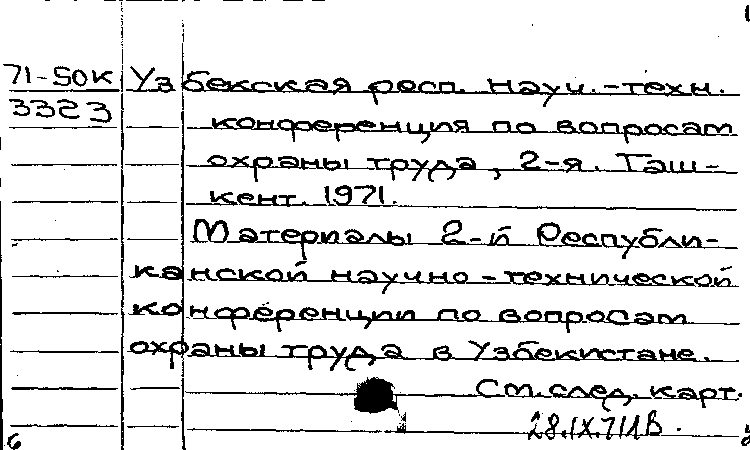 71-50К Узбекская респ. науч.-техн.
3323
конференция по вопросам
охраны труда, 2-я. Таш-
кент. 1971.
Материалы 2-й Республи-
канской научно-технической
конференции по вопросам
охраны труда в Узбекистане.
См. след. карт.
28.IX.71
6